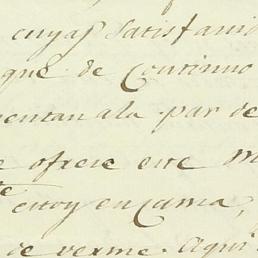 cuyas Satisfaci
que de Continuo
mentan ala par de
ofrece este M
estoy en Cama,
de verme. Aqui